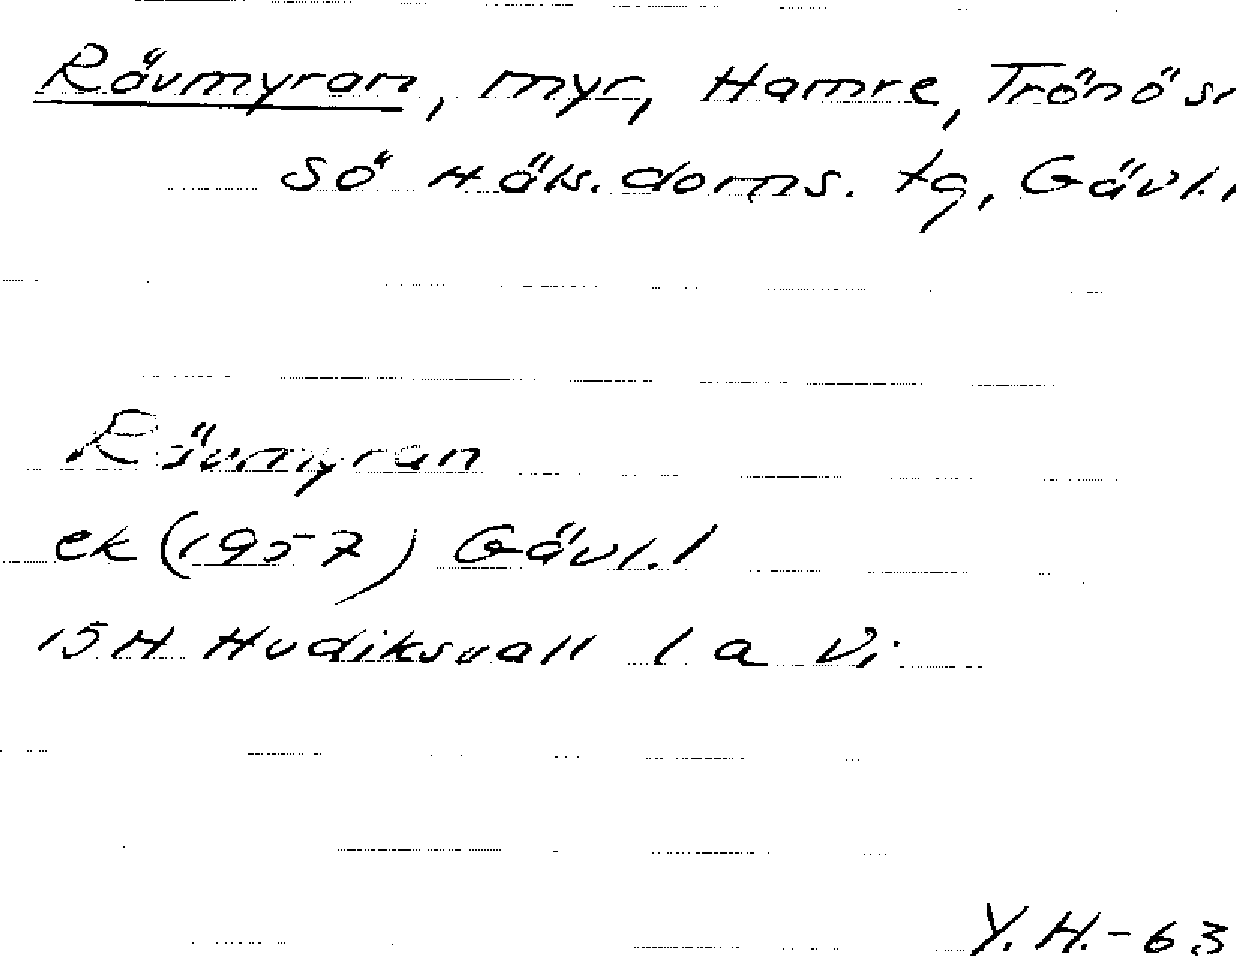 Rävmyran, myr, Hamre, Trönö sn
Sö Häls. doms. tg, Gävl. l
Rävmyran
ek (1957) Gävl. l
15H Hudiksvall 1 a Vi
Y. H. - 63